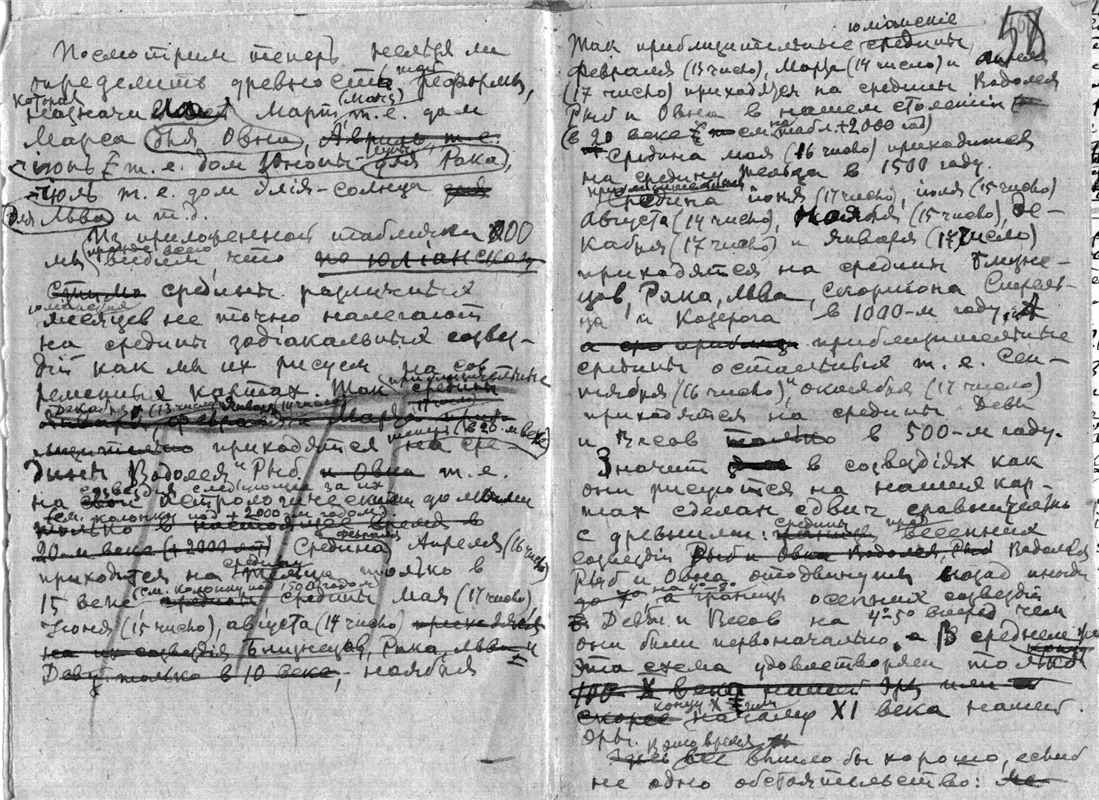 Посмотрим теперь нельзя ли
определить древность той реформы,
которая назначила Март (Марс) т.е. дом
Марса для Овна, Апрель, т.е.
Июнь т.е. дом Юноны для Рака,
Июль т.е. дом Элія-солнца
для Льва и т.д.
Из приложенной таблички
мы прежде всего видим, что по юліанскому
средины различных
юліанских месяцев не точно налегают
на средины зодіакальных созвез-
дій как мы их рисуем на сов
ременных картах. Так приблизительные средины
Декабря (13 число) Января
Января, февраля, Марта
приходятся на сре-
дины Водолея Рыб и Овна т.е.
на следующие за их
астрологическими домами
(см. колонки под +2000 годом)
только в настоящее время в
20-м веке (+2000 лет) Средина Апреля (16 число)
приходится на средину Тельца только в
15 веке (см. колонку под 1500 годом) средины Мая (17 число),
Июня (15 число), августа (14 число) приходятся
на их созвездія Близнецов, Рака, Льва и
Деву только в 10 веке, ноября
58
юліанские
Так приблизительные средины
Февраля (13 число), Марта (14 число) и апреля
(17 число) приходятся на средины Водолея
Рыб и Овна в нашем столетіи
(в 20 веке см. на табл. +2000 лет)
Средина мая (16 число) приходится
на средину Тельца в 1500 году.
приблизительная
Средина іюня (17 число), іюля (15 число)
Августа (14 число), Ноября (15 число), Де-
кабря (17 число) и Января (17 число)
приходятся на средины Близне-
цов, Рака, Льва, Скорпиона Стрель-
ца и Козерога в 1000-м году. А
приблизительные
средины остальных т.е. Сен-
тября (16 число) и октября (17 число)
приходятся на средины Девы
и Весов только в 500-м году.
Значит в созвездіях как
они рисуются на наших кар-
тах сделан сдвиг сравнительно
с древними: средины весенних
созвездій Рыб и Овна Водолея Рыб Водолея
Рыб и Овна отодвинуты назад
на 4°-5°, а границы осенних созвездій
Девы и Весов на 4°-5° вперед чем
они были первоначально. В среднем
эта схема удовлетворяет только
100 X века нашей эры или
скорее концу X или началу XI века нашей
эры.
Здесь все вышло бы хорошо, если б
не одно обстоятельство: не